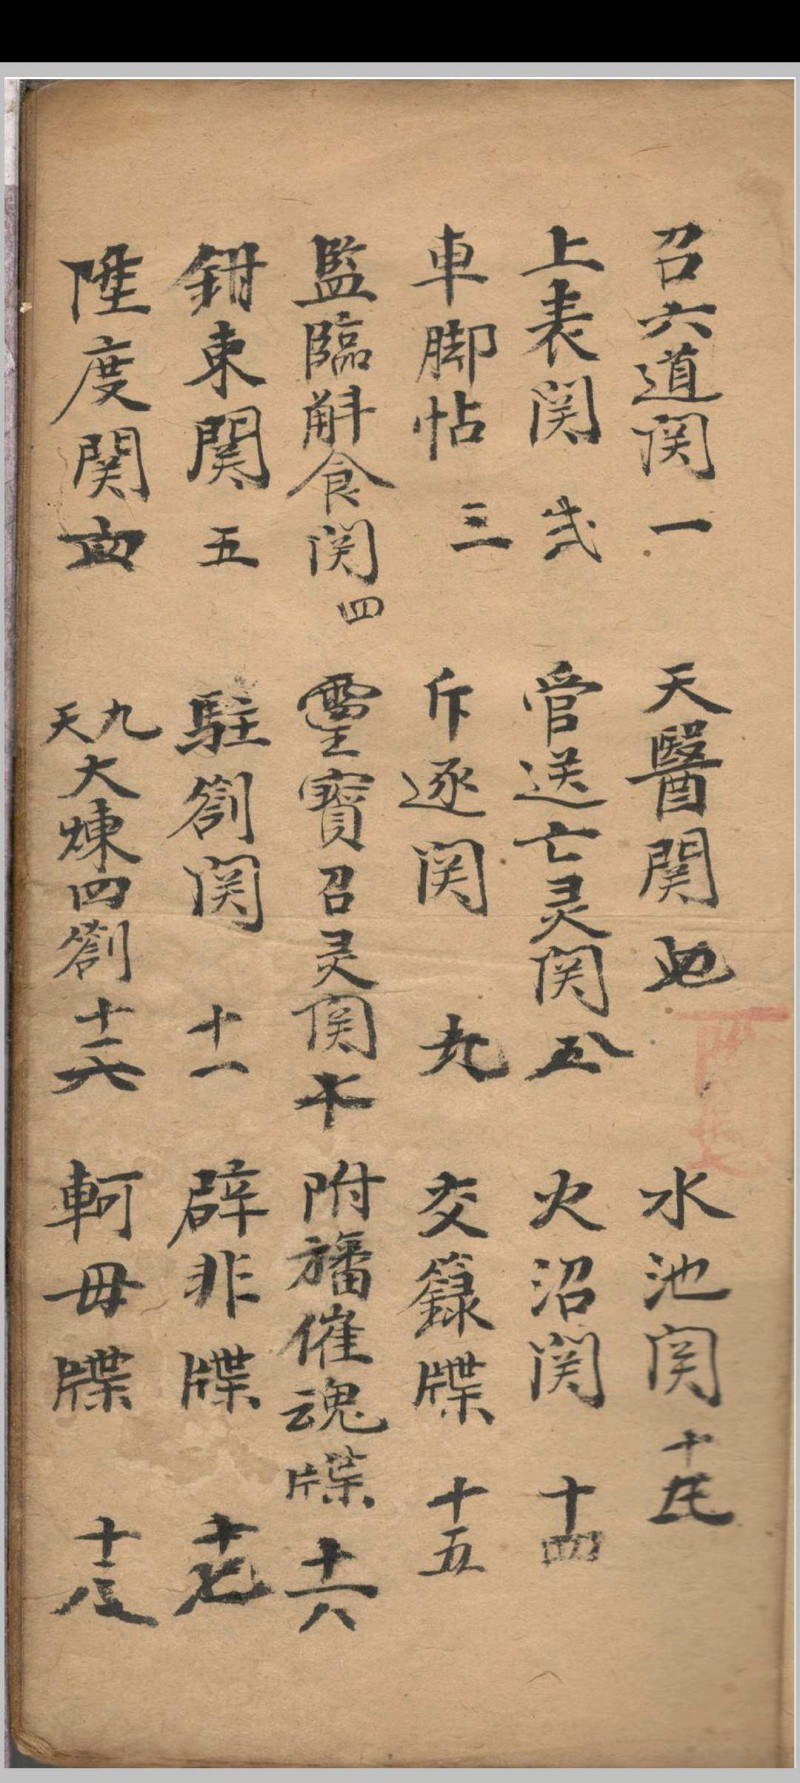 召六道関 一
上表関 弍
車脚帖 三
監臨斛食関 四
鉗束関 五
陞度関
天醫関
管送亡灵関
斥逐関 九
靈寳召灵関 十
駐劄関 十一
九天大煉四劄 十二
水池関
火沼関 十四
交籙牒 十五
附旛催魂牒 十六
辟非牒 十七
軻毋牒 十八